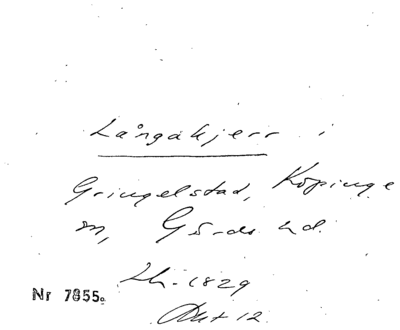 Långakjerr i
Gringelstad, Köpinge
sn, Gärds hd.
Lh. 1829
Akt 12
Nr 7855.